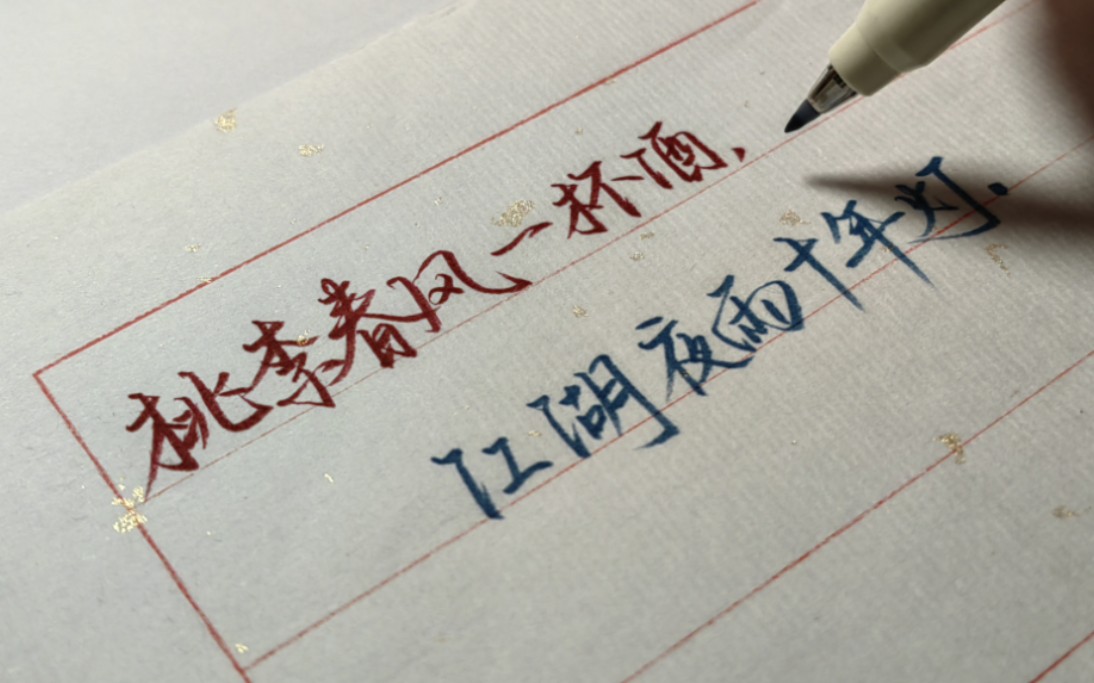 桃李春风一杯酒，
江湖夜雨十年灯.